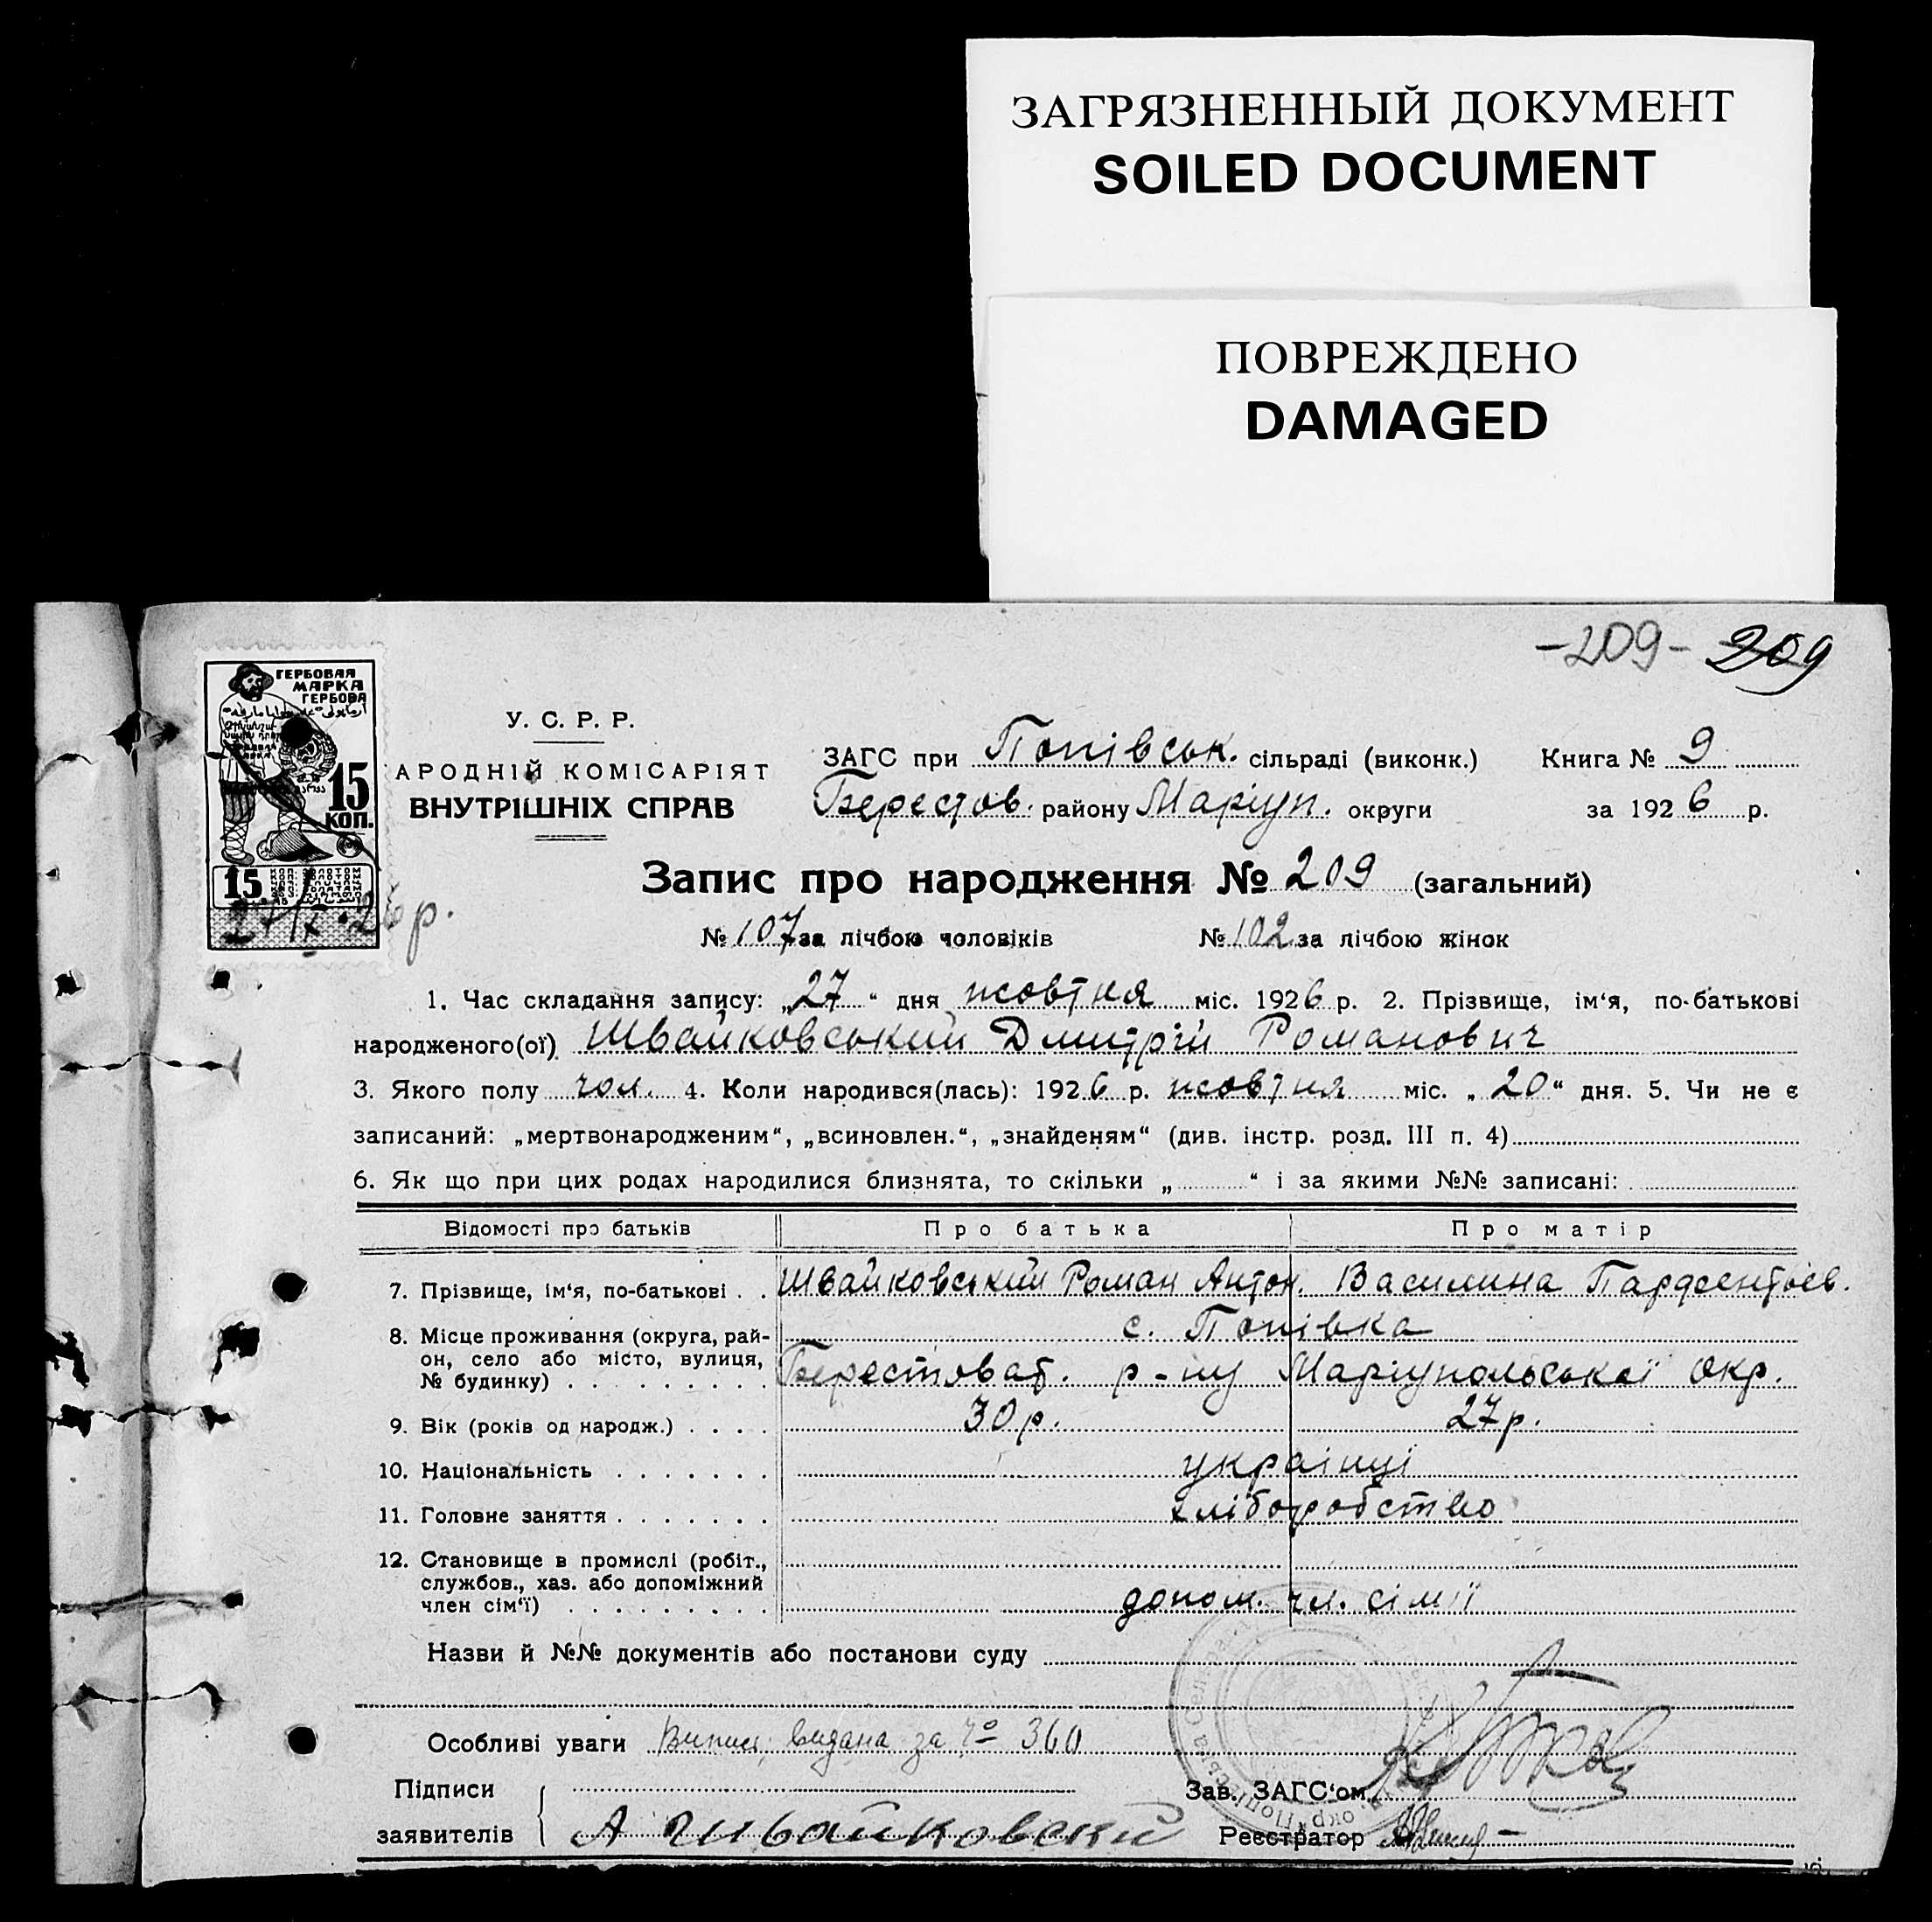 ЗАГРЯЗНЕННЫЙ ДОКУМЕНТ
SOILED DOCUMENT
ПОВРЕЖДЕНО
DAMAGED
-209- 209
ГЕРБОВАЯ
МАРКА
ГЕРБОВА
15
КОП.
15
У. С. Р. Р.
АРОДНІЙ КОМІСАРІЯТ
ВНУТРІШНІХ СПРАВ
ЗАГС при Попівськ. сільраді (виконк.) Книга № 9
Берестов. району Маріуп. округи за 1926 р.
Запис про народження № 209 (загальний)
№ 107 за лічбою чоловіків № 102 за лічбою жінок
1. Час складання запису: „27“ дня жовтня міс. 1926 р. 2. Прізвище, ім‘я, по-батькові
народженого(ої) Швайковський Дмитрій Романович
3. Якого полу чол. 4. Коли народився(лась): 1926 р. жовтня міс. „20“ дня. 5. Чи не є
записаний: „мертвонародженим“, „всиновлен.“, „знайденям“ (див. інстр. розд. III п. 4)
6. Як що при цих родах народилися близнята, то скільки „ “ і за якими №№ записані:
Відомості про батьків Про батька Про матір
7. Прізвище, ім‘я, по-батькові . . Швайковський Роман Антон. Василина Парфентьєв.
8. Місце проживання (округа, рай- с. Попівка
он, село або місто, вулиця,
№ будинку) . . . . . . . . . Берестоват. р-ну Маріупольської окр.
9. Вік (років од народж.) . . . . 30 р. 27 р.
10. Національність . . . . . . . українці
11. Головне заняття . . . . . . . хліборобство
12. Становище в промислі (робіт.,
службов., хаз. або допоміжний
член сім‘ї) . . . . . . . . . допом. чл. сім'ї
Назви й №№ документів або постанови суду
Особливі уваги Випись видана за № 360
Підписи Зав. ЗАГС‘ом
заявителів А Швайковский Реєстратор